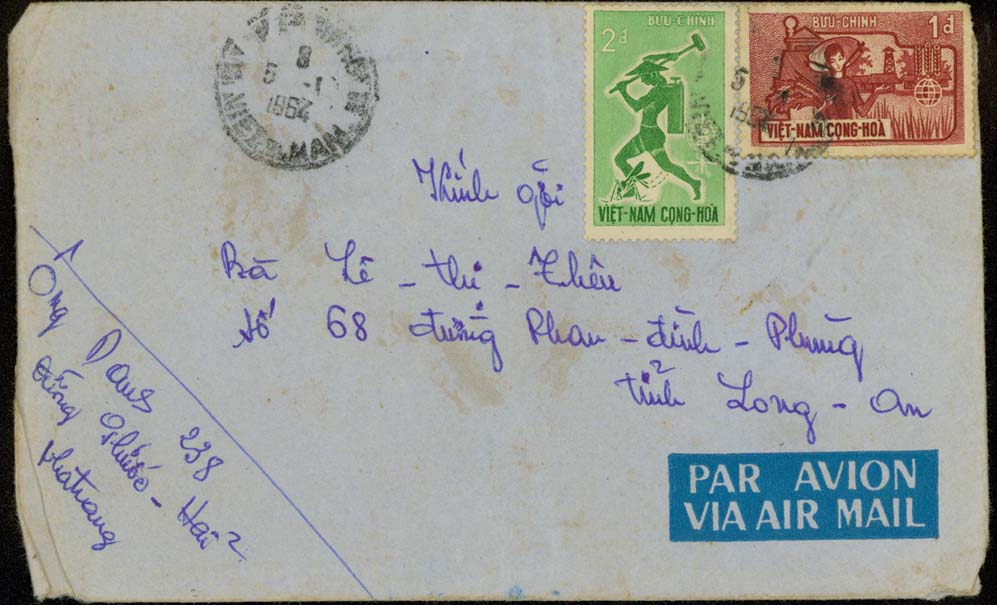 8
5 -1
1964
BƯU-CHÍNH
2đ
VIỆT-NAM CỘNG-HÒA
BƯU-CHÍNH 1đ
VIỆT-NAM CỘNG-HÒA
Kính gởi
Bà Lê - thị - Thêu
số 68 đường Phan - đình - Phùng
tỉnh Long - An
Ông Dans 238
đường Phước - Hải
Nhatrang
PAR AVION
VIA AIR MAIL